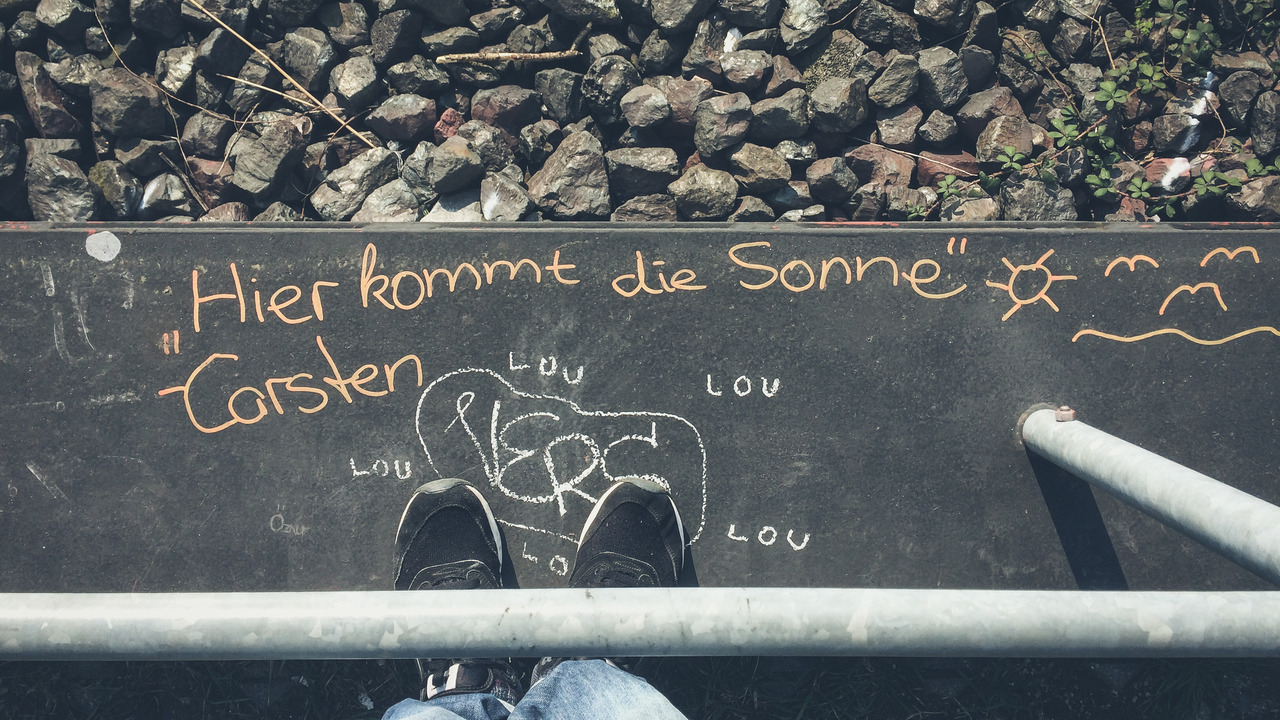 Hier kommt die Sonne"
"Carsten
LOU
LOU
VERS
LOU
LOU
LO
Öznur